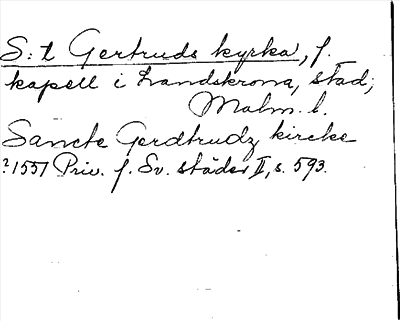 S:t Gertruds kyrka, f.
kapell i Landskrona, stad;
Malm. l.
Sancte Gerdtrudz kircke
?1551 Priv. f. Sv. städer II, s. 593.